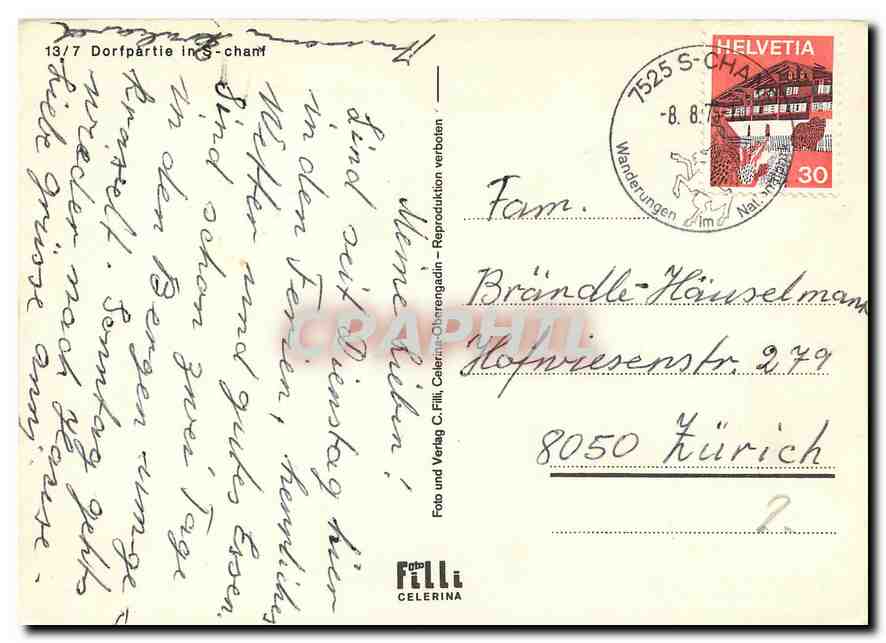 13/7 Dorfpartie in S-chanf
Meine Lieben!
Sind seit Dienstag hier
in den Ferien, herrliches
Wetter und gutes Essen.
Sind schon zwei Tage
in den Bergen umge-
kraxelt. Sonntag gehts
wieder nach Hause.
Liebe Grüsse Anny.
Foto und Verlag C. Filli, Celerina-Oberengadin – Reproduktion verboten
Foto Filli
CELERINA
HELVETIA
30
7525 S-CHA
-8. 8. 7
Wanderungen im Nat.
Fam.
Brändle-Häuselmann
Hofwiesenstr. 279
8050 Zürich
2.
CPAPHIL